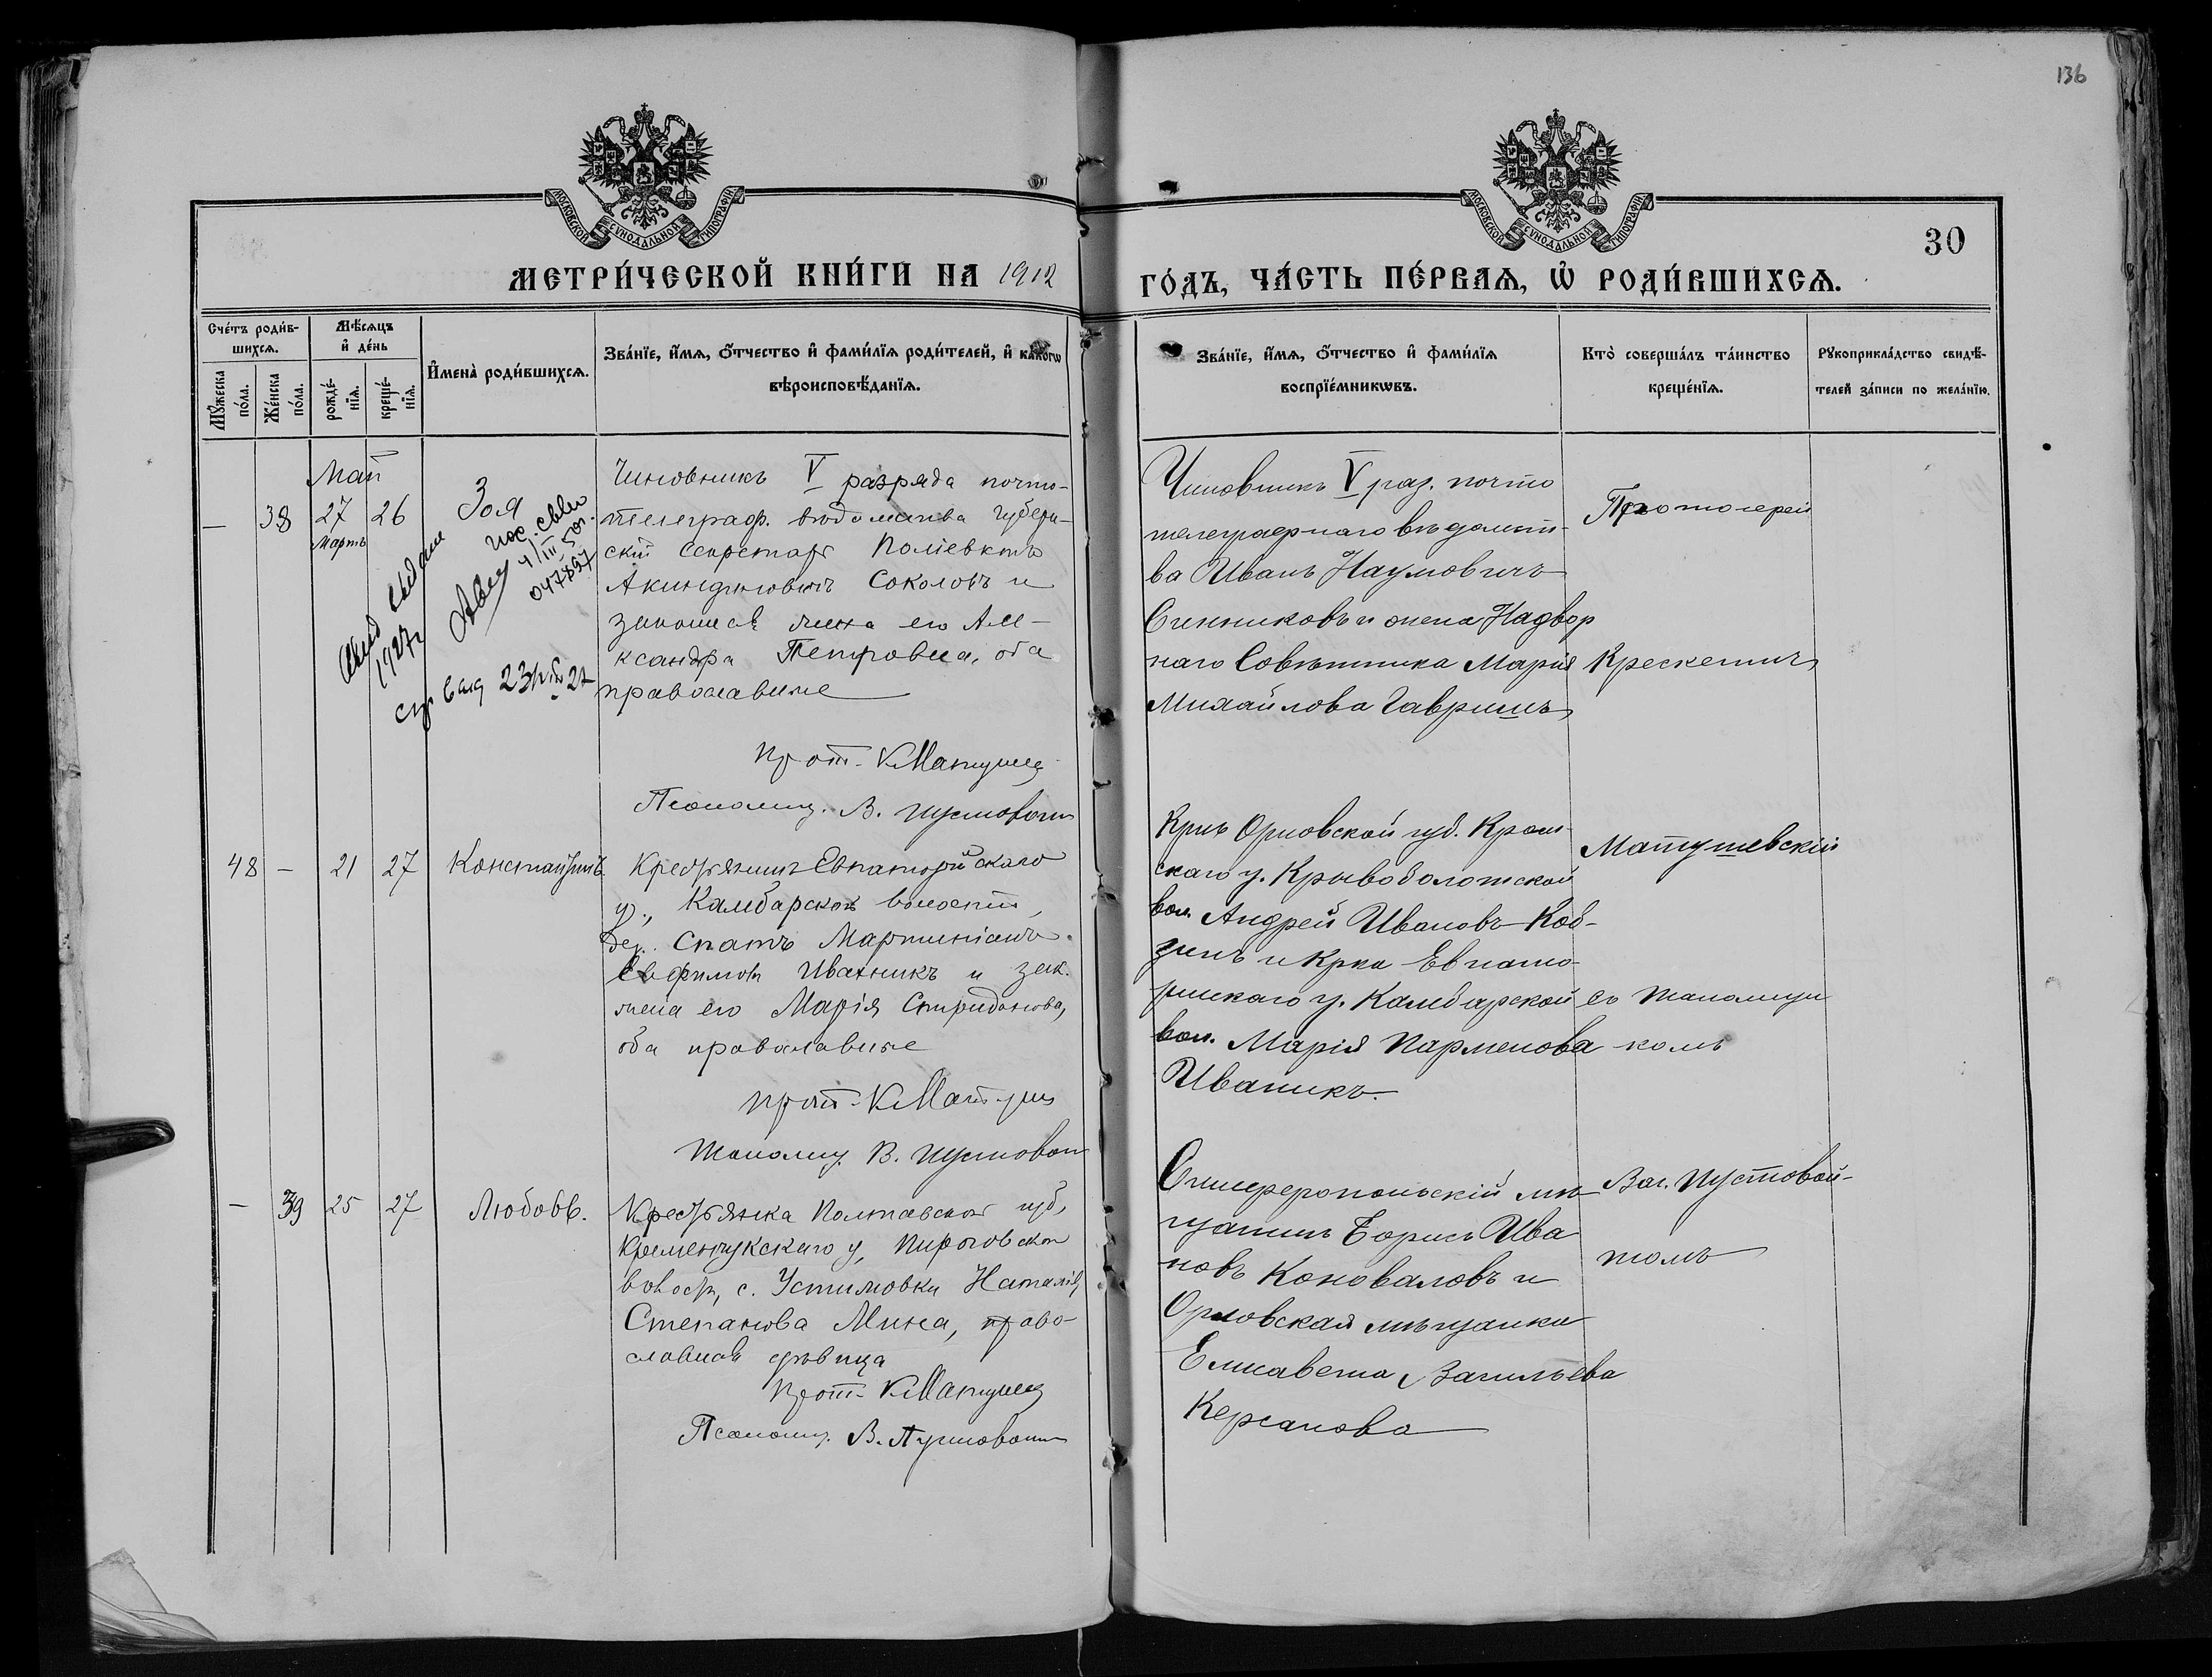 136
МОСКОВСКОЙ СѴНОДАЛЬНОЙ ТИПОГРАФІИ
МОСКОВСКОЙ СѴНОДАЛЬНОЙ ТИПОГРАФІИ
30
МЕТРИ́ЧЕСКОЙ КНИ́ГИ НА 1912
ГО́ДЪ, ЧА́СТЬ ПЕ́РВАѦ, Ѡ РОДИ́ВШИХСѦ.
Сче́тъ роди́в-
шихсѧ.
Мѣ́сѧцъ
и де́нь
Мꙋ́жеска
по́ла.
Же́нска
по́ла.
рожде́-
нїѧ.
креще́-
нїѧ.
И҆мена̀ роди́вшихсѧ.
Зва́нїе, и҆́мѧ, ѻ҆́тчество и҆ фами́лїѧ роди́телей, и҆ како́гѡ
вѣроисповѣ́данїѧ.
Зва́нїе, и҆́мѧ, ѻ҆́тчество и҆ фами́лїѧ
воспрїе́мникѡвъ.
Кто̀ соверша́лъ та́инство
креще́нїѧ.
Рꙋкоприкла́дство свидѣ́-
телей за́писи по жела́нїю.
Май
— 38 27 26 Зоя
Мартъ
1927г
047897
Чиновникъ V разряда почто-
телеграф. вѣдомства Губерн-
скій Секретарь Поліевктъ
Акиндиновичъ Соколовъ и
законная жена его Але-
ксандра Петровна, оба
православные
Прот. К Матуше
Псаломщ. В. Пустовойт
Чиновникъ V раз. почто
телеграфнаго вѣдомст-
ва Иванъ Наумовичъ
Синниковъ и жена Надвор
наго Совѣтника Марія
Михайлова Гавришъ
Протоіерей
Крескентъ
48 — 21 27 Константинъ
Крестьянинъ Евпаторійскаго
у., Камбарской волости,
дер. Спатъ Мартиніанъ
Евфимовъ Иваникъ и зак.
жена его Марія Спиридонова,
оба православные
Прот. К Матуш
Псаломщ. В. Пустовойт
Крнъ Орловской губ. Кром-
скаго у. Кривоболотской
вол. Андрей Ивановъ Коб-
зинъ и Крка Евпато-
рійскаго у. Камбарской
вол. Марія Парменова
Иваникъ.
Матушевскій
съ псаломщи
комъ
— 39 25 27 Любовь.
Крестьянка Полтавской губ,
Кременчукскаго у, Пироговской
волост, с. Устимовки Наталія
Степанова Мина, право-
славная дѣвица
Прот. К Матуше
Псаломщ. В. Пустовойт
Симферопольскій мѣ-
щанинъ Борисъ Ива
новъ Коноваловъ и
Орловская мѣщанка
Елисавета Васильева
Керсанова
Вас. Пустовой-
томъ